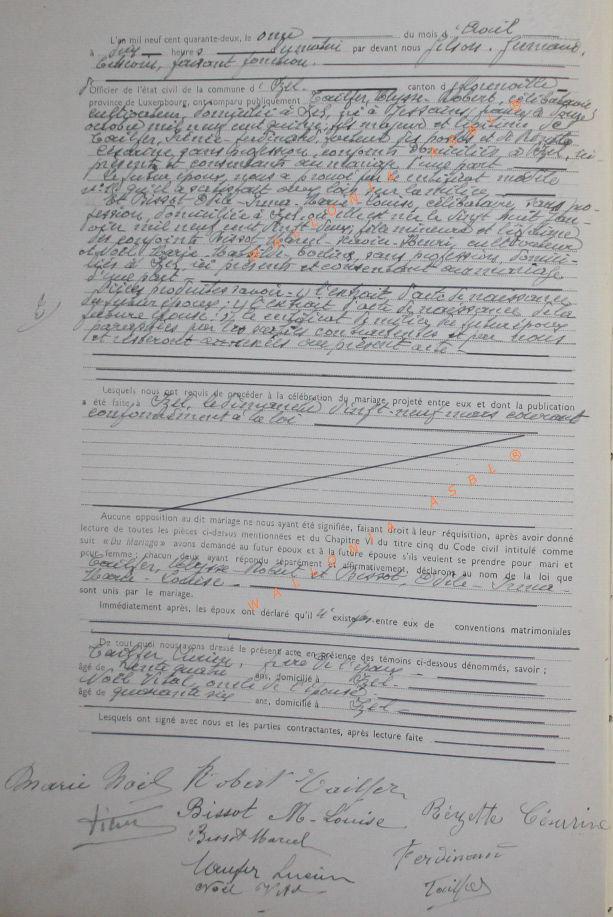 L'an mil neuf cent quarante-deux, le onze du mois d'Avril
à dix heures du matin par devant nous Gilson, Fernand,
faisant fonction.
Officier de l'état civil de la commune d'Izel, canton de Florenville
province de Luxembourg, ont comparu publiquement Tailfer, Ulysse-Robert, célibataire
cultivateur, domicilié à Izel, né à
octobre mil neuf cent quinze, fils majeur et légitime de
Tailfer, Ferdinand, et de
sans profession, conjoints domiciliés à Izel, ici
présents et consentants au mariage d'une part
Le futur époux nous a prouvé par le certificat modèle
qu'il a satisfait aux lois sur la milice
Et Bissot Odile-Irma-Marie-Louise, célibataire, sans pro-
fession, domiciliée à Izel, où elle est née le vingt huit jan-
vier mil neuf cent vingt deux, fille mineure et légitime
des conjoints Bissot Marcel Henri, cultivateur
et Noël Marie sans profession, domici-
liés à Izel, ici présents et consentant au mariage
d'une part.
Pièces produites savoir: 1) l'extrait d'acte de naissance
du futur époux; 2) l'extrait d'acte de naissance de la
future épouse; 3) le certificat de milice du futur époux
paraphées par les parties comparantes et par nous
et resteront annexées au présent acte
Lesquels nous ont requis de procéder à la célébration du mariage projeté entre eux et dont la publication
a été faite à Izel, le dimanche vingt-neuf mars courant
conformément à la loi
Aucune opposition au dit mariage ne nous ayant été signifiée, faisant droit à leur réquisition, après avoir donné
lecture de toutes les pièces ci-dessus mentionnées et du Chapitre VI du titre cinq du Code civil intitulé comme
suit « Du Mariage » avons demandé au futur époux et à la future épouse s'ils veulent se prendre pour mari et
pour femme; chacun deux ayant répondu séparément et affirmativement, déclarons au nom de la loi que
Tailfer, Ulysse-Robert et Bissot, Odile-Irma-
Marie-Louise
sont unis par le mariage.
Immédiatement après, les époux ont déclaré qu'il n'existe pas entre eux de conventions matrimoniales
De tout quoi nous avons dressé le présent acte en présence des témoins ci-dessous dénommés, savoir:
Tailfer Lucien, frère de l'époux
âgé de trente quatre ans, domicilié à Izel
Noël Vital, oncle de l'épouse
âgé de quarante six ans, domicilié à Izel
Lesquels ont signé avec nous et les parties contractantes, après lecture faite
Marie Noël Robert Tailfer
Bissot M-Louise
Bissot Marcel
Ferdinand
Tailfer Lucien
Tailfer
Noël Vital
WALLONIA ASBL®
WALLONIA ASBL®